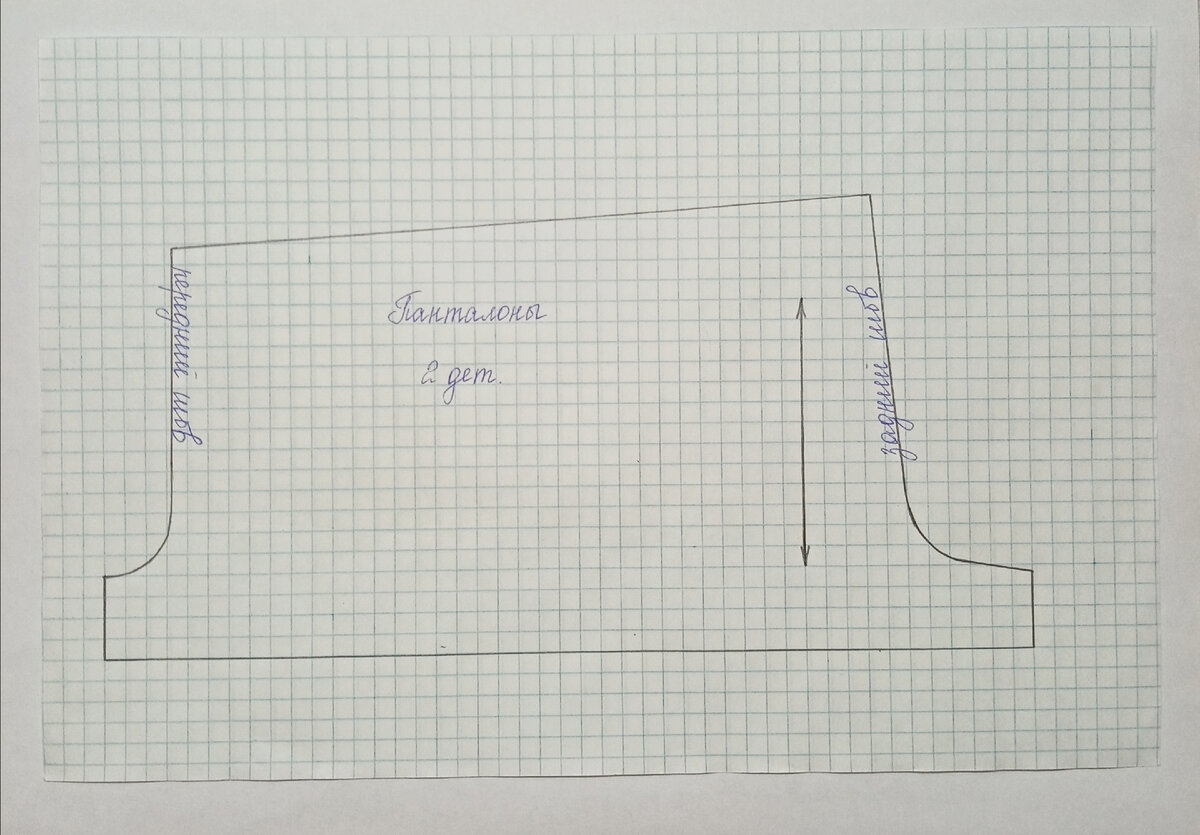 Панталоны
2 дет.
передний шов
задний шов